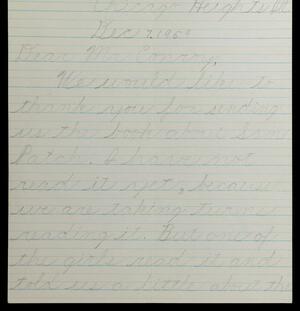 Chicago Heights Ill
Dec 7, 1959
Dear Mr Conroy,
We would like to
thank you for sending
us the book about Sam
Patch. I have not
read it yet, because
we are taking turns
reading it. But one of
the girls read it and
told us a little about the